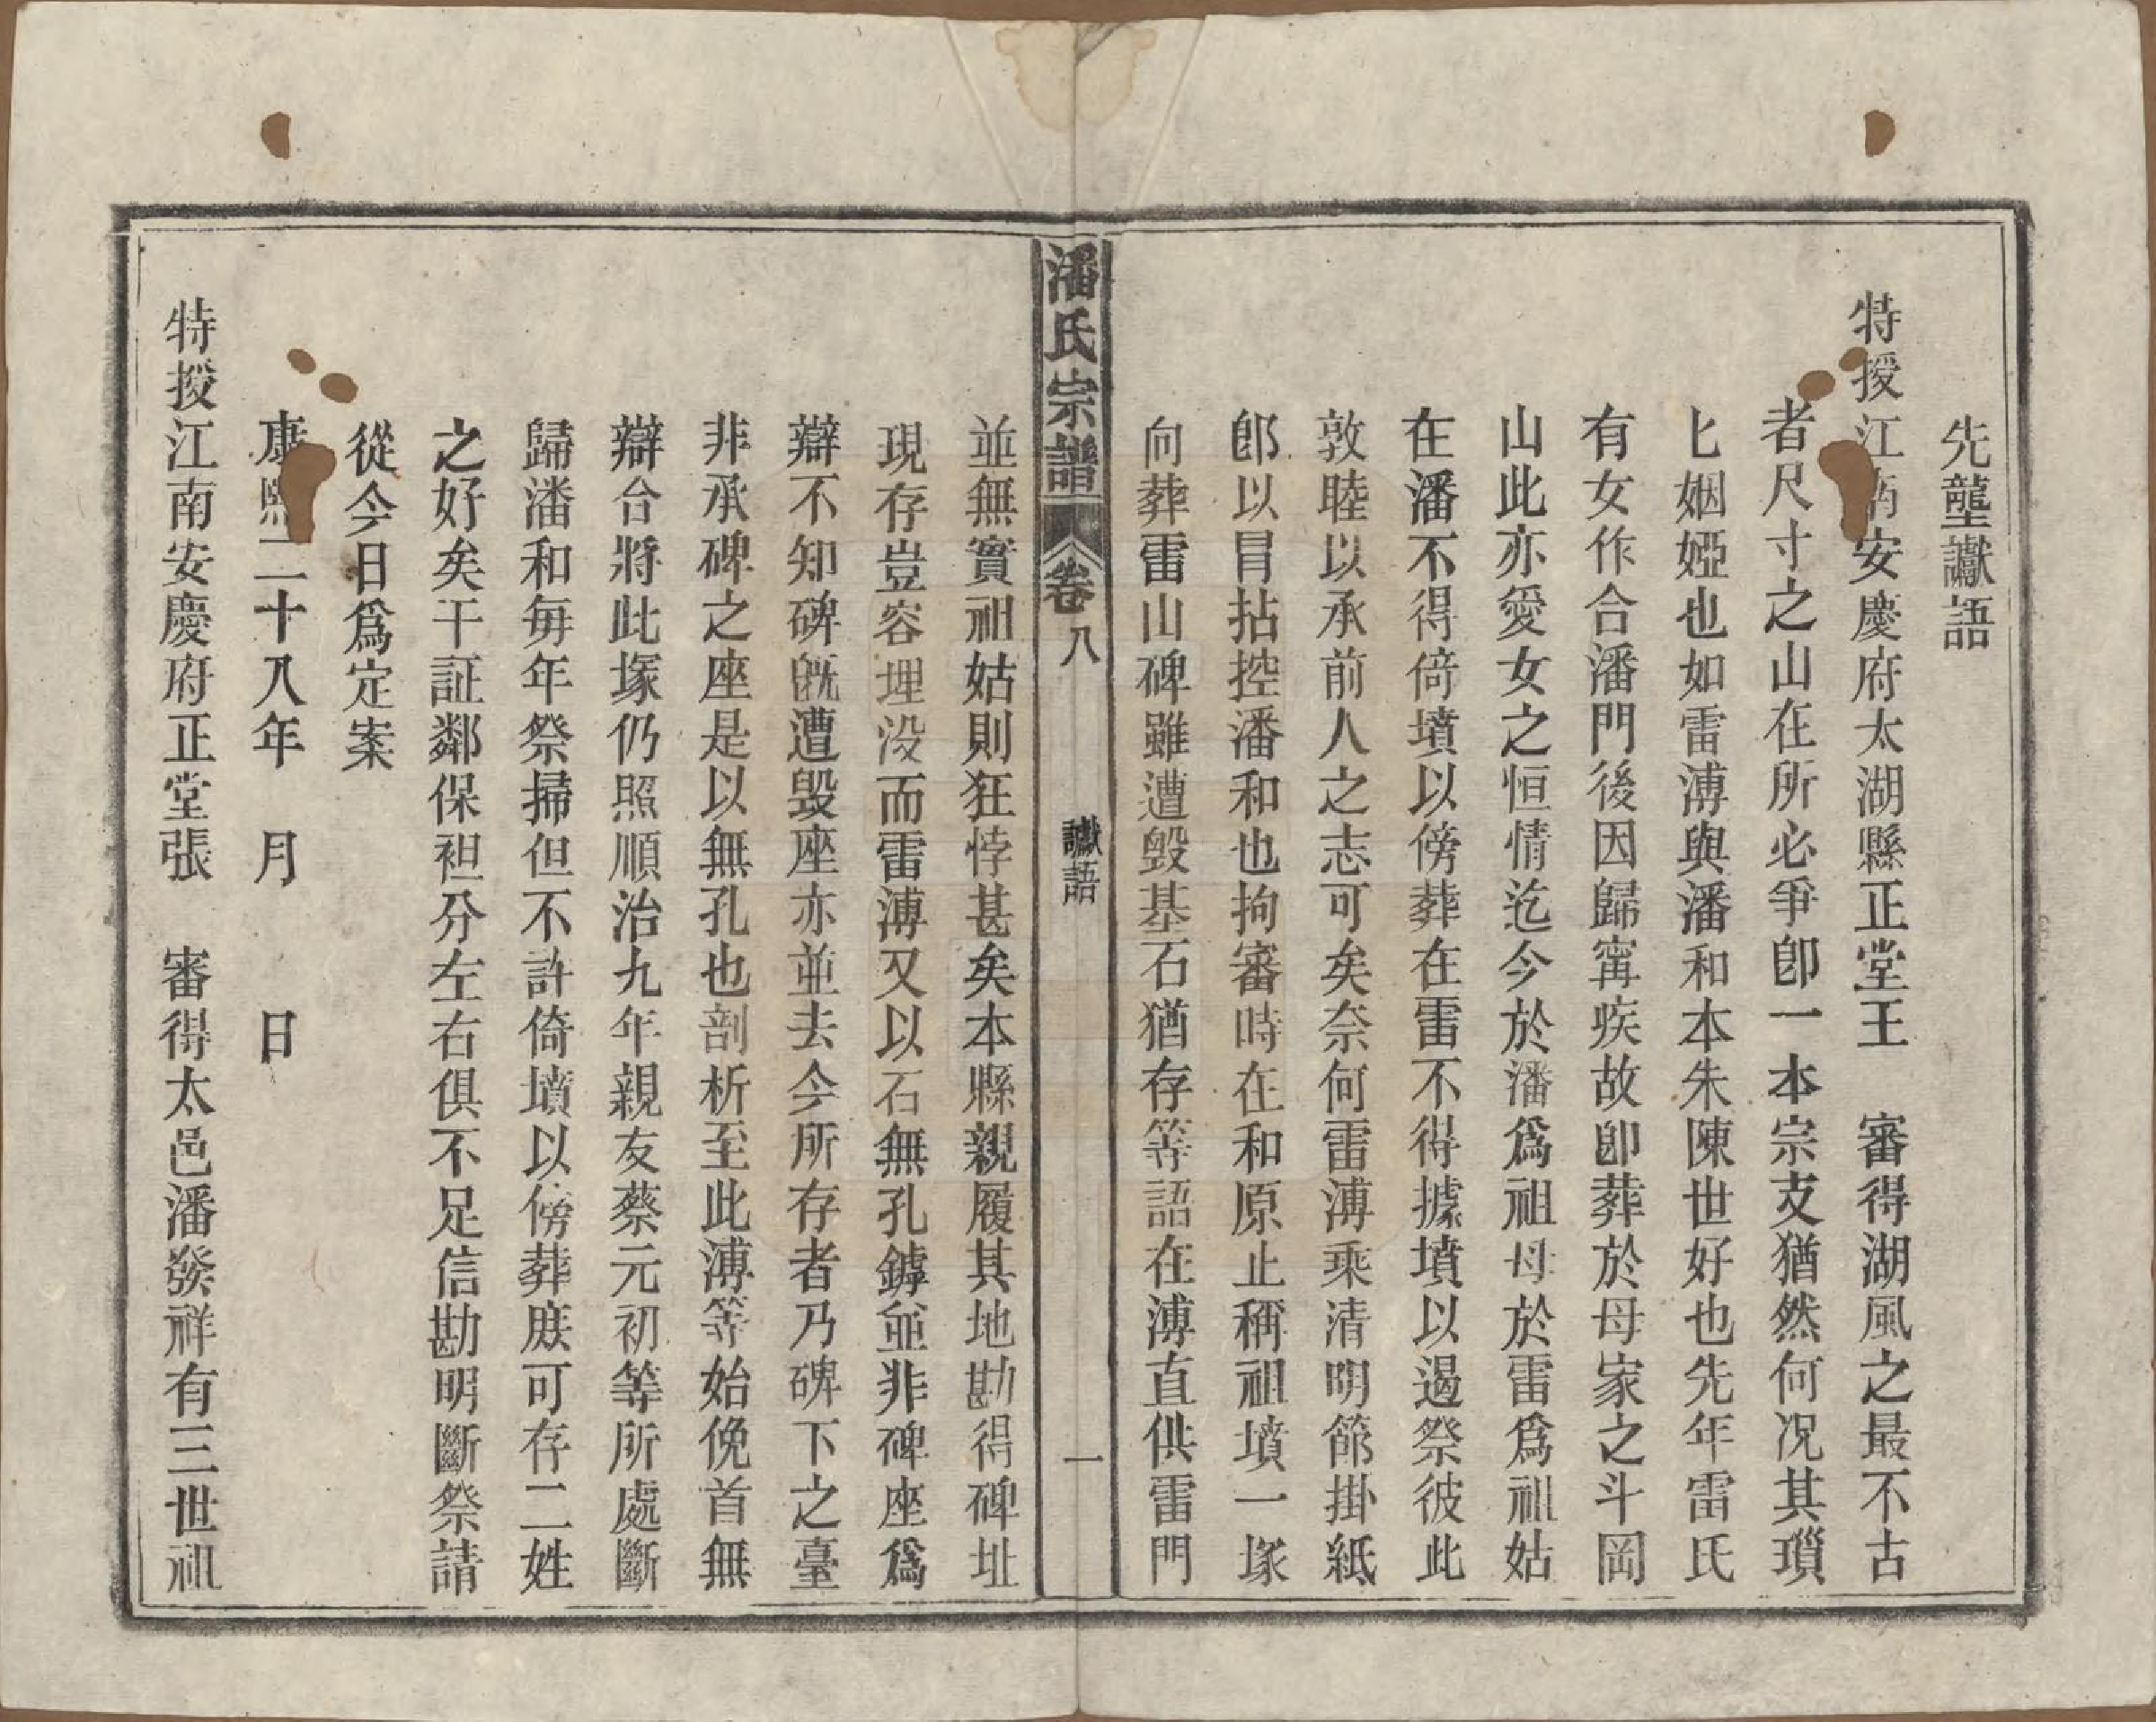 先壟讞語
特授江南安慶府太湖縣正堂王　審得湖風之最不古
者尺寸之山在所必爭卽一本宗支猶然何况其瑣
匕姻婭也如雷溥與潘和本朱陳世好也先年雷氏
有女作合潘門後因歸寗疾故卽葬於母家之斗岡
山此亦愛女之恒情迄今於潘爲祖母於雷爲祖姑
在潘不得倚墳以傍葬在雷不得據墳以遏祭彼此
敦睦以承前人之志可矣奈何雷溥乘清明節掛紙
卽以冐拈控潘和也拘審時在和原止稱祖墳一塚
向葬雷山碑雖遭毁基石猶存等語在溥直供雷門
潘氏宗譜
卷八
讞語
一
並無實祖姑則狂悖甚矣本縣親履其地勘得碑址
現存豈容埋没而雷溥又以石無孔鏬並非碑座爲
辯不知碑旣遭毁座亦並去今所存者乃碑下之臺
非承碑之座是以無孔也剖析至此溥等始俛首無
辯合將此塚仍照順治九年親友蔡元初等所處斷
歸潘和每年祭掃但不許倚墳以傍葬庶可存二姓
之好矣干証鄰保袒分左右俱不足信勘明斷祭請
從今日爲定案
康熙二十八年　月　日
特授江南安慶府正堂張　審得太邑潘發祥有三世祖